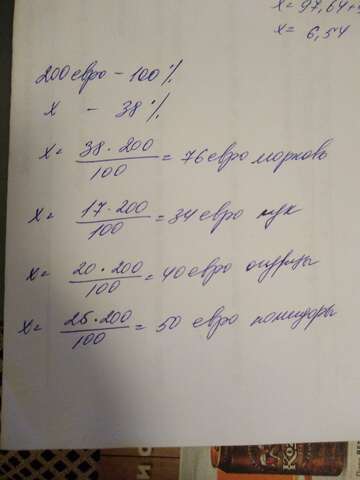 x = 97,64
x = 6,54
200 евро – 100%
x – 38%
x = 38 · 200 / 100 = 76 евро морковь
x = 17 · 200 / 100 = 34 евро лук
x = 20 · 200 / 100 = 40 евро огурцы
x = 25 · 200 / 100 = 50 евро помидоры